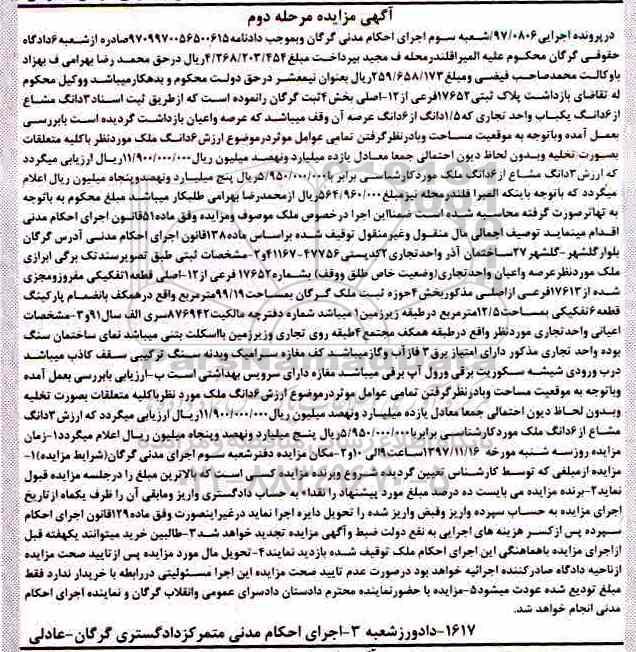 آگهی مزایده مرحله دوم
در پرونده اجرایی ۹۷/۰۸۰۶/شعبه سوم اجرای احکام مدنی گرگان وبموجب دادنامه ۹۷۰۹۹۷۰۰۵۶۵۰۰۶۱۵صادره ازشعبه۶دادگاه
حقوقی گرگان محکوم علیه المیراقلندرمحله ف مجید بپرداخت مبلغ ۴/۲۶۸/۲۰۳/۴۵۴ریال درحق محمد رضا بهرامی ف بهزاد
باوکالت محمدصاحب فیضی ومبلغ۲۵۹/۶۵۸/۱۷۳ریال بعنوان نیمعشر درحق دولت محکوم و بدهکارمیباشد ووکیل محکوم
له تقاضای بازداشت پلاک ثبتی۱۷۶۵۲فرعی از۱۲-اصلی بخش۴ثبت گرگان رانموده است که ازطریق ثبت اسناد۳دانگ مشاع
از۶دانگ یکباب واحد تجاری که۱/۵دانگ از۶دانگ عرصه آن وقف میباشد که عرصه واعیان بازداشت گردیده است بابررسی
بعمل آمده وباتوجه به موقعیت مساحت وبادرنظرگرفتن تمامی عوامل موثردرموضوع ارزش۶دانگ ملک موردنظر باکلیه متعلقات
بصورت تخلیه وبدون لحاظ دیون احتمالی جمعا معادل یازده میلیارد ونهصد میلیون ریال۱۱/۹۰۰/۰۰۰/۰۰۰ریال ارزیابی میگردد
که ارزش۳دانگ مشاع از۶دانگ ملک موردکارشناسی برابر با۵/۹۵۰/۰۰۰/۰۰۰ریال پنج میلیارد ونهصدوپنجاه میلیون ریال اعلام
میگردد که باتوجه باینکه المیرا قلندرمحله نیزمبلغ۵۶۴/۹۶۰/۰۰۰ریال ازمحمدرضا بهرامی طلبکار میباشد مبلغ محکوم به باتوجه
به تهاترصورت گرفته محاسبه شده است ضمنااین اجرا درخصوص ملک موصوف ومزایده وفق ماده۵۱قانون اجرای احکام مدنی
اقدام مینماید توصیف اجمالی مال منقول وغیرمنقول توقیف شده براساس ماده۱۳۸قانون اجرای احکام مدنی آدرس گرگان
بلوارگلشهر-گلشهر۲۷ساختمان آذر واحدتجاری۲کدپستی۴۷۷۵۶-۴۱۱۶۷و۲-مشخصات ثبتی طبق تصویرسندتک برگی ابرازی
ملک موردنظرعرصه واعیان واحدتجاری(وضعیت خاص طلق ووقف) بشماره۱۷۶۵۲فرعی از۱۲-اصلی قطعه۱تفکیکی مفروزومجزی
شده از۱۷۶۱۳فرعی ازاصلی مذکوربخش۴حوزه ثبت ملک گرگان بمساحت۹۹/۱۹مترمربع واقع درهمکف بانضمام پارکینگ
قطعه۶تفکیکی بمساحت۱۲/۵مترمربع درطبقه زیرزمین۱میباشد شماره دفترچه مالکیت۸۷۶۹۴۲سری الف سال۹۱و۳-مشخصات
اعیانی واحدتجاری موردنظر واقع درطبقه همکف مجتمع۴طبقه روی تجاری وزیرزمین بااسکلت بتنی میباشد نمای ساختمان سنگ
بوده واحد تجاری مذکور دارای امتیاز برق۳ فازآب وگازمیباشد کف مغازه سرامیک وبدنه سنگ ترکیبی سقف کاذب میباشد
درب ورودی شیشه سکوریت برقی ورول آپ برقی میباشد مغازه دارای سرویس بهداشتی است ب-ارزیابی بابررسی بعمل آمده
وباتوجه به موقعیت مساحت وبادرنظرگرفتن تمامی عوامل موثردرموضوع ارزش۶دانگ ملک مورد نظرباکلیه متعلقات بصورت تخلیه
وبدون لحاظ دیون احتمالی جمعا معادل یازده میلیارد ونهصد میلیون ریال۱۱/۹۰۰/۰۰۰/۰۰۰ریال ارزیابی میگردد که ارزش۳دانگ
مشاع از۶دانگ ملک موردکارشناسی برابربا۵/۹۵۰/۰۰۰/۰۰۰ریال پنج میلیارد ونهصد وپنجاه میلیون ریال اعلام میگردد۱-زمان
مزایده روزسه شنبه مورخه ۱۳۹۷/۱۱/۱۶ساعت۹الی ۱۰و۲-مکان مزایده دفترشعبه سوم اجرای مدنی گرگان(شرایط مزایده)۱-
مزایده ازمبلغی که توسط کارشناس تعیین گردیده شروع وبرنده مزایده کسی است که بالاترین مبلغ را درجلسه مزایده قبول
نماید۲-برنده مزایده می بایست ده درصد مبلغ مورد پیشنهاد را نقدا به حساب دادگستری واریز ومابقی آن را ظرف یکماه ازتاریخ
اجرای مزایده به حساب سپرده واریز وقبض واریز شده را تحویل دایره اجرا نماید درغیراینصورت وفق ماده۱۲۹قانون اجرای احکام
سپرده پس ازکسر هزینه های اجرایی به نفع دولت ضبط وآگهی مزایده تجدید خواهد شد۳-طالبین خرید میتوانند یکهفته قبل
ازاجرای مزایده باهماهنگی این اجرای احکام ملک توقیف شده بازدید نمایند۴-تحویل مال مورد مزایده پس ازتایید صحت مزایده
ازناحیه دادگاه صادرکننده اجرائیه خواهد بود درصورت عدم تایید صحت مزایده این اجرا مسئولیتی دررابطه با خریدار ندارد فقط
مبلغ تودیع شده عودت میشود۵-مزایده با حضورنماینده محترم دادستان دادسرای عمومی وانقلاب گرگان و نماینده اجرای احکام
مدنی انجام خواهد شد.
۱۶۱۷-دادورزشعبه ۳-اجرای احکام مدنی متمرکزدادگستری گرگان-عادلی